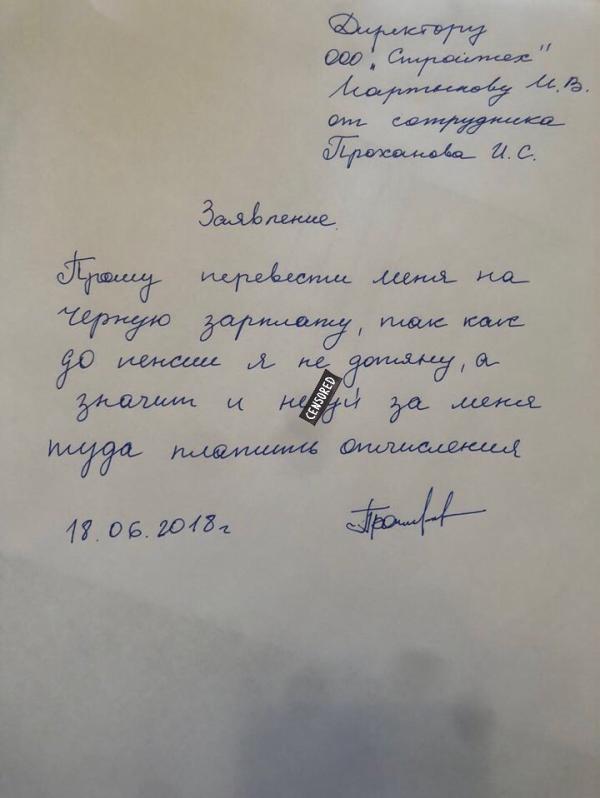 Директору
ООО „Стройтех"
Мартынову И.В.
от сотрудника
Проханова И.С.
Заявление.
Прошу перевести меня на
черную зарплату, так как
до пенсии я не дотяну, а
значит и не уй за меня
CENSORED
туда платить отчисления
18.06.2018г